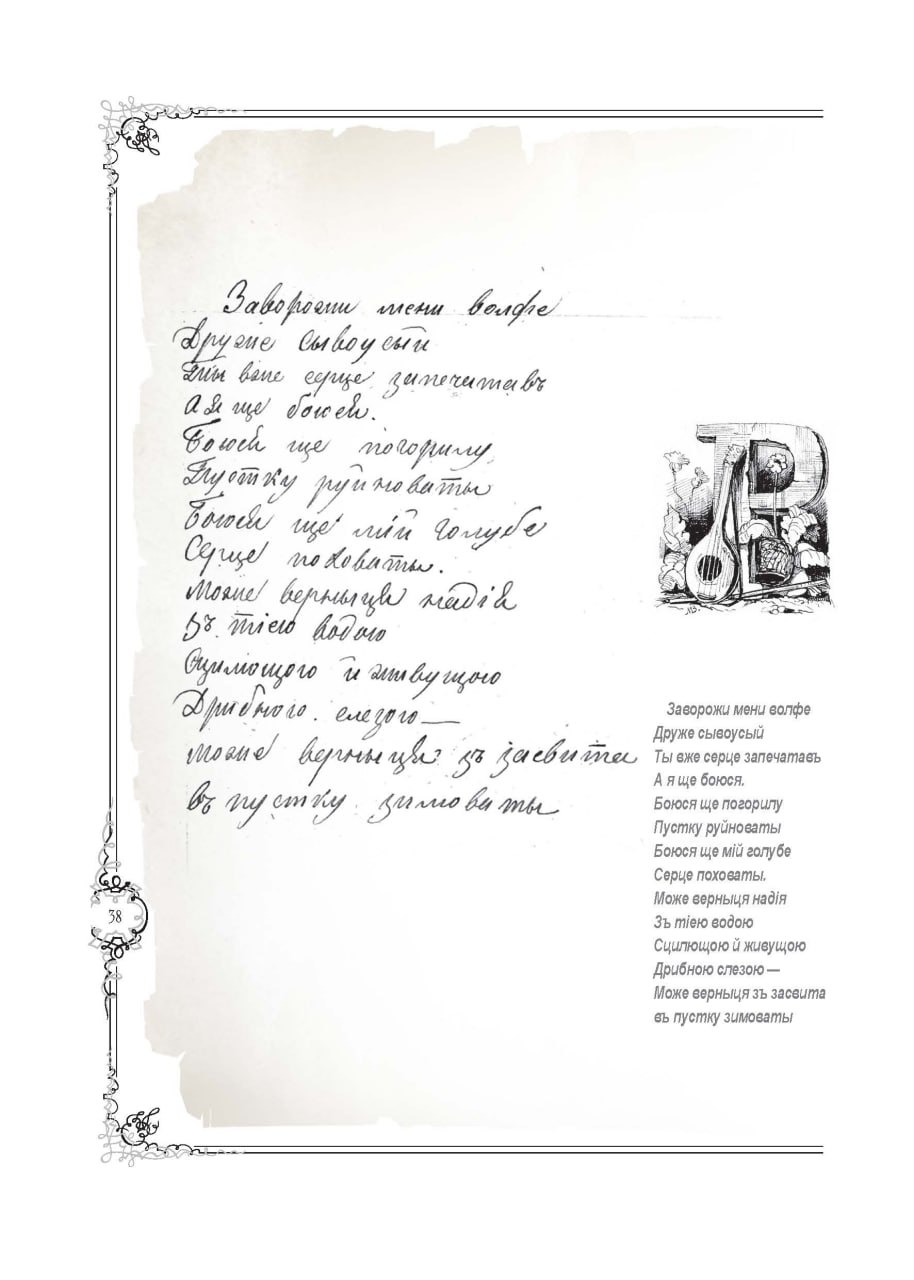 Заворожи мени волфе
Друже сывоусый
Ты вже серце запечатавъ
А я ще боюся.
Боюся ще погорилу
Пустку руйноваты
Боюся ще мій голубе
Серце поховаты.
Може верныця надія
Зъ тією водою
Сцилющою й живущою
Дрибною слезою —
Може верныця зъ засвита
въ пустку зимоваты
Заворожи мени волфе
Друже сывоусый
Ты вже серце запечатавъ
А я ще боюся.
Боюся ще погорилу
Пустку руйноваты
Боюся ще мій голубе
Серце поховаты.
Може верныця надія
Зъ тією водою
Сцилющою й живущою
Дрибною слезою —
Може верныця зъ засвита
въ пустку зимоваты
38